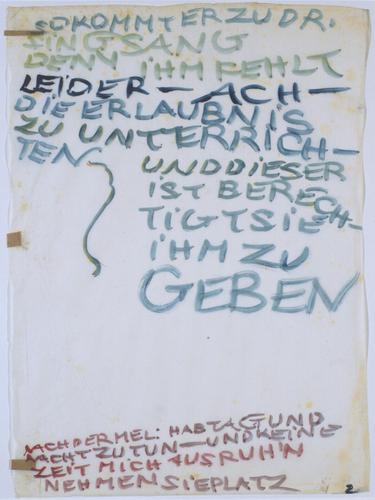 SO KOMMT ER ZU DR.
SINGSANG
DENN IHM FEHLT
LEIDER — ACH —
DIE ERLAUBNIS
ZU UNTERRICH-
TEN
UND DIESER
IST BERECH-
TIGT SIE
IHM ZU
GEBEN
NACH DER MEL: HAB TAG UND
NACHT ZU TUN — UND KEINE
ZEIT MICH AUSRUH'N
NEHMEN SIE PLATZ
2